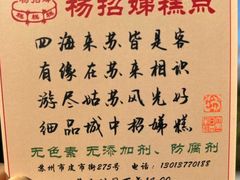 杨招娣糕点
四海来苏皆是客
有缘在苏来相识
游尽姑苏风光好
细品城中招娣糕
无色素 无添加剂、防腐剂
苏州市皮市街275号 电话：13013770188